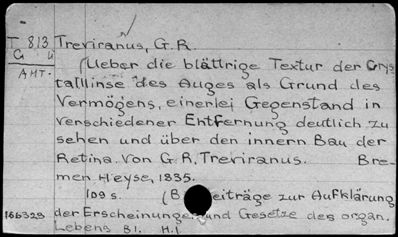 T 813 Treviranus, G.R.
G u (Ueber die blättrige Textur der Crys
AMT. talllinse des Auges als Grund des
Vermögens, einerlei Gegenstand in
verschiedener Entfernung deutlich zu
sehen und über den innern Bau der
Retina. Von G.R. Treviranus. Bre-
men Heyse, 1835.
109 s. (B eiträge zur Aufklärung
166329 der Erscheinunge und Gesetze des organ.
Lebens B1. H.1.